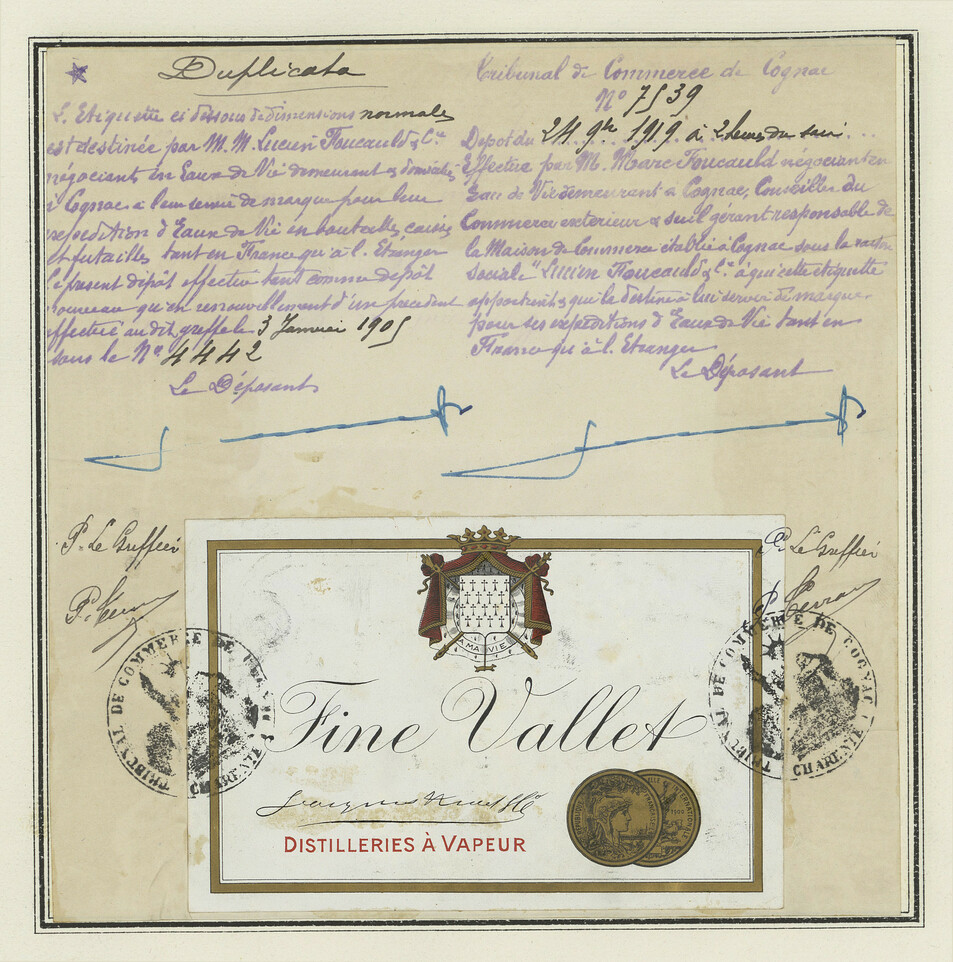 Duplicata
L'Etiquette ci dessous de dimensions normales
est destinée par M.M. Lucien Foucauld & Cie
négociants en Eaux de Vie demeurant & domiciliés
à Cognac à leur servir de marque pour leur
expédition d'Eaux de Vie en bouteilles, caisses
et futailles tant en France qu'à l'Etranger
le présent dépôt effectué tant comme dépôt
nouveau qu'en renouvellement d'un précédent
effectué au dit greffe le 3 Janvier 1905
sous le No 4442
Le Déposant
Tribunal de Commerce de Cognac
No 7539
Depot du 24 9bre 1919 à 2 heures du soir
Effectué par M. Marc Foucauld négociant en
Eau de Vie demeurant à Cognac, Conseiller du
Commerce extérieur & seul gérant responsable de
la Maison de Commerce établie à Cognac sous la raison
sociale "Lucien Foucauld & Cie" à qui cette étiquette
appartient & qui la destine à lui servir de marque
pour ses expéditions d'Eaux de Vie tant en
France qu'à l'Etranger
Le Déposant
P. Le Greffier
P. Le Greffier
TRIBUNAL DE COMMERCE DE COGNAC
CHARENTE
TRIBUNAL DE COMMERCE DE COGNAC
CHARENTE
A MA VIE
Fine Vallet
DISTILLERIES À VAPEUR